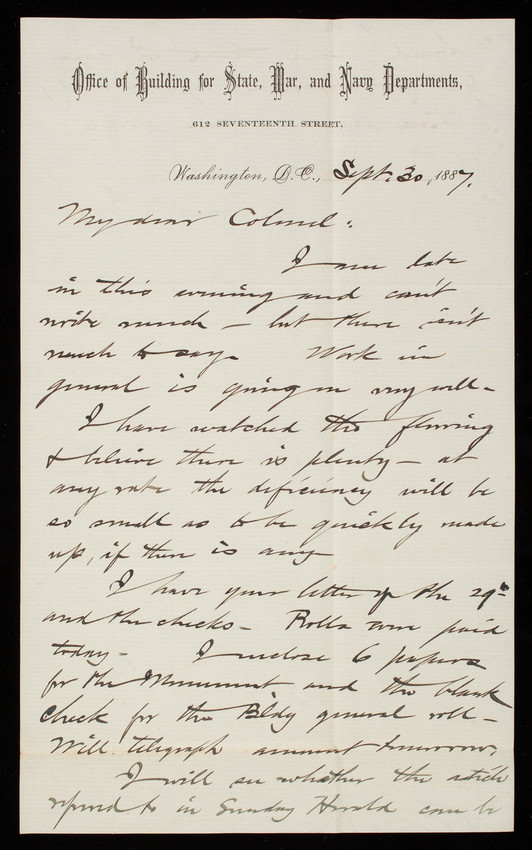 Office of Building for State, War, and Navy Departments,
612 SEVENTEENTH STREET,
Washington, D.C., Sept. 30, 1887.
My dear Colonel:
I am late
in this evening and can't
write much — but there isn't
much to say. Work in
general is going on very well —
I have watched the flooring
& believe there is plenty — at
any rate the deficiency will be
so small as to be quickly made
up, if there is any
I have your letter of the 29th
and the checks — Rolls were paid
today — I enclose 6 papers
for the Monument and the blank
check for the Bldg general roll —
Will telegraph amount tomorrow.
I will see whether the article
referred to in Sunday Herald can be